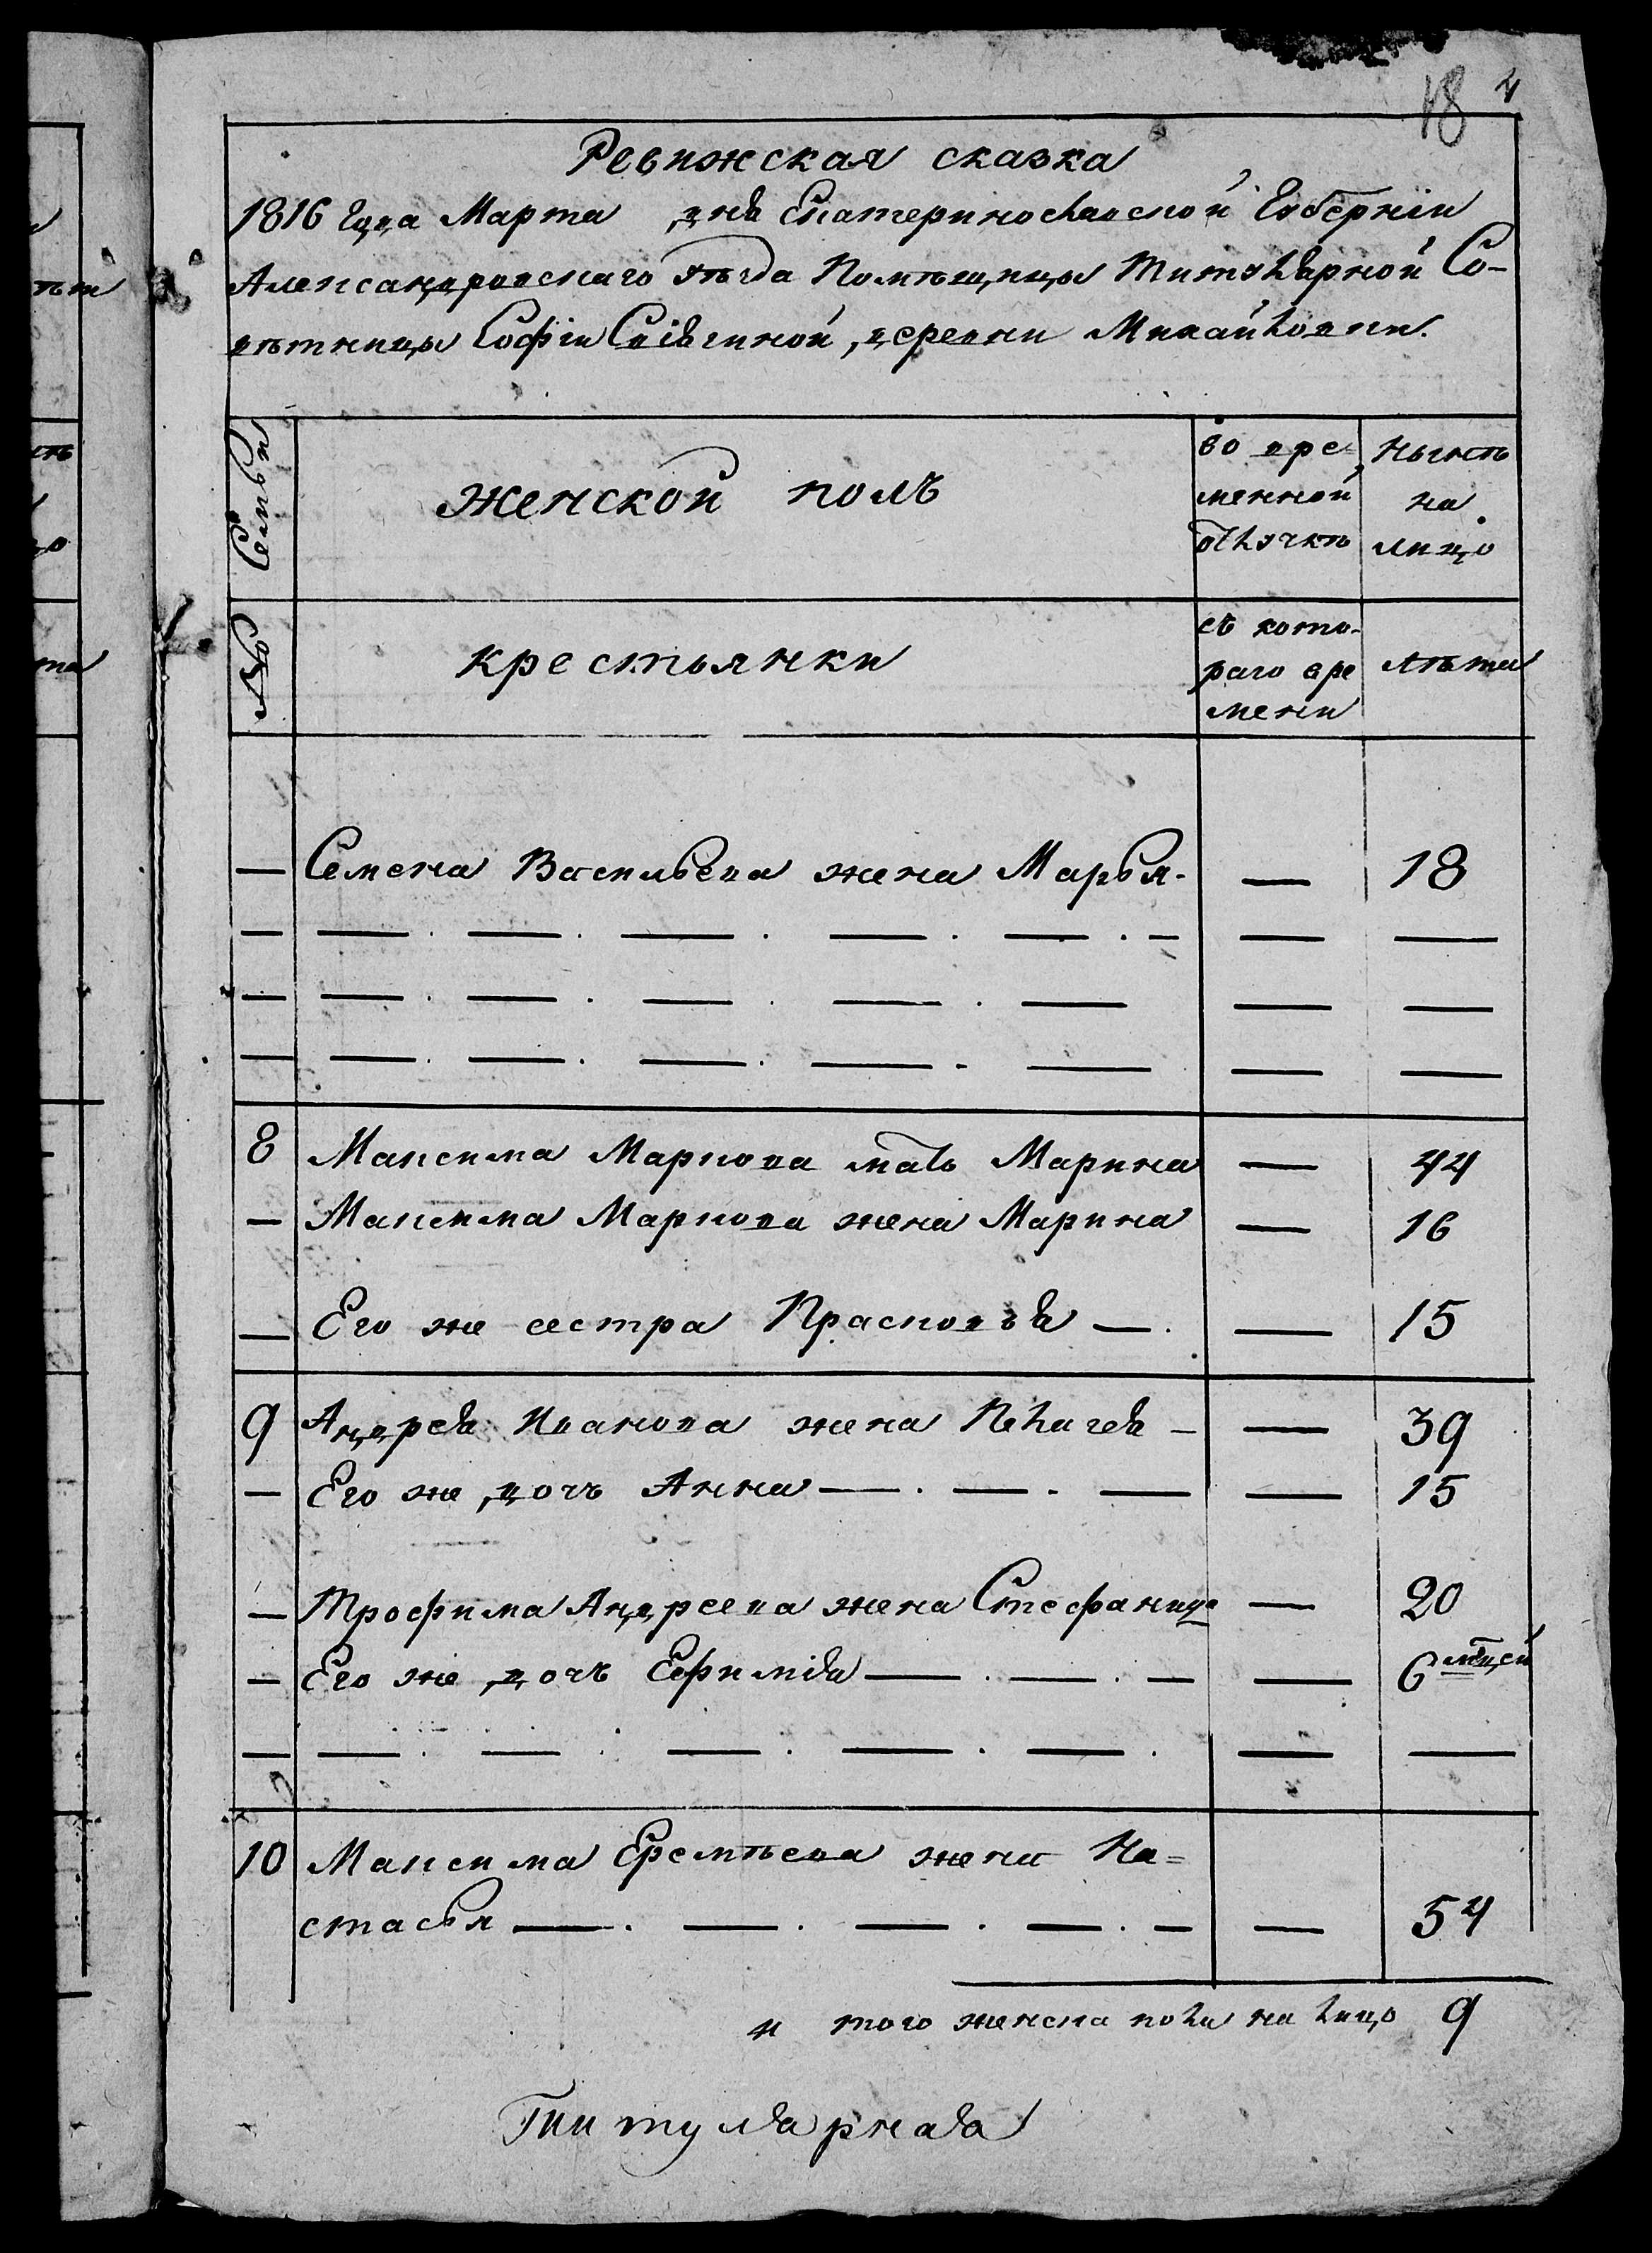 18 4
Ревижская сказка
1816 года Марта дня Екатеринославской Губерніи
Александровскаго уѣзда Помѣщицы Титулярной Со-
вѣтницы Софіи , деревни Михайловки.
Семьи
женской полъ
во вре-
менной
отлучкѣ
нынѣ
на
лицо
№
крестьянки
съ кото-
раго вре
мени
лѣта
— Семена Васильева жена Марья. — 18
8 Максима Маркова мать Марина — 44
— Максима Маркова жена Марина — 16
— Его же сестра Прасковья — . — 15
9 Андрея Иванова жена Пелагея — — 39
— Его же дочь Анна — . — . — — 15
— Трофима Андреева жена Стефанида — 20
— Его же дочъ Ефимія — . — . — — 6 мѣцей
10 Максима Еремѣева жена На=
стасья — . — . — . — . — — 54
и того женска пола на лицо 9
Титулярная